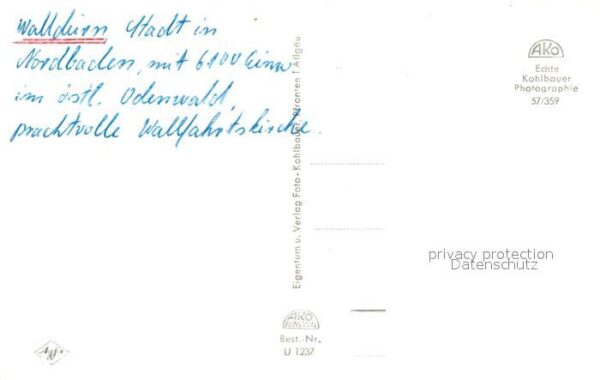 Walldürn Stadt in
Nordbaden, mit 6100 Einw
im östl. Odenwald,
prachtvolle Wallfahrtskirche.
Eigentum u. Verlag Foto-Kohlbauer, Pfronten / Allgäu
AKO
Echte
Kohlbauer
Photographie
57/359
privacy protection
Datenschutz
AKO
Best.-Nr.
U 1237
Agfa